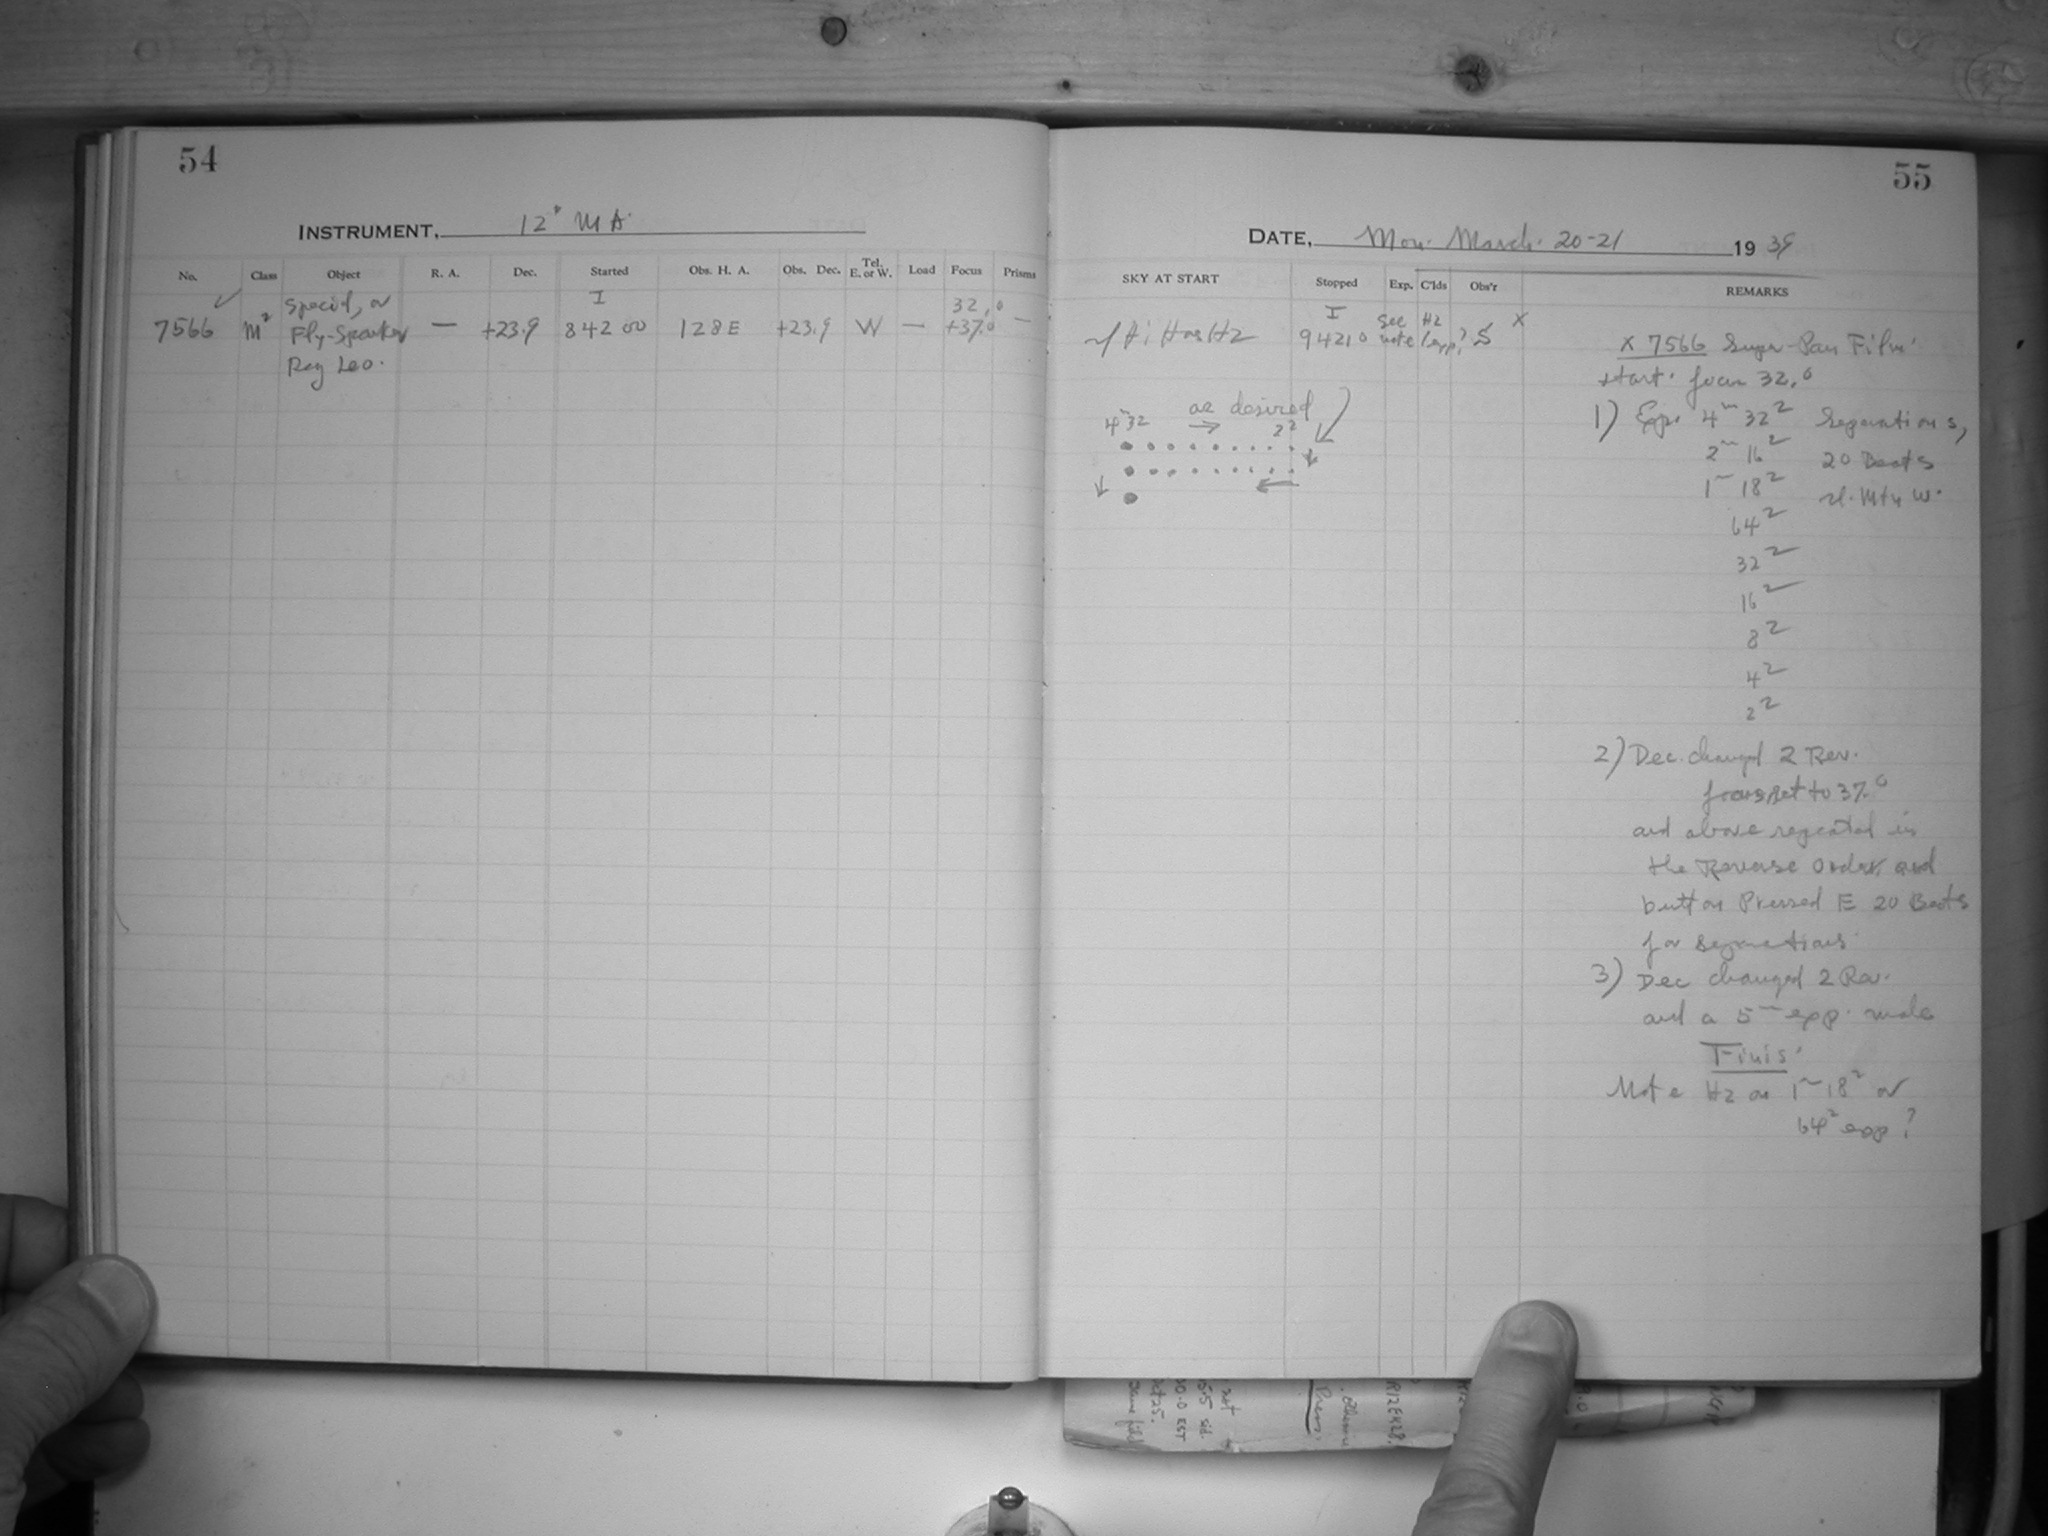 54
INSTRUMENT, 12" MA
No. Class Object R. A. Dec. Started Obs. H. A. Obs. Dec. Tel. E. or W. Load Focus Prisms
Special, or I 32.0
7566 M² Fly-Spanker — +23.9 8 42 00 128E +23.9 W — +37.0 —
Reg Leo.
55
DATE, Mon. March 20-21 1939
SKY AT START Stopped Exp. C'lds Obs'r REMARKS
I see Hz X
9 42 10 note exp? S
4m 32 as desired
→ 2s
X 7566 Super-Pan Film
start. focus 32.0
1) Exp. 4m 32s Separations,
2m 16s 20 Beats
1m 18s W.
64s
32s
16s
8s
4s
2s
2) Dec. changed 2 Rev.
focus set to 37.0
and above repeated in
the Reverse Order, and
button Pressed E 20 Beats
for separations
3) Dec changed 2 Rev.
and a 5m exp. made
Finis
Note Hz on 1m 18s or
64s exp?
Prism
R12EH28.
55 sid.
00.0 EST
same field